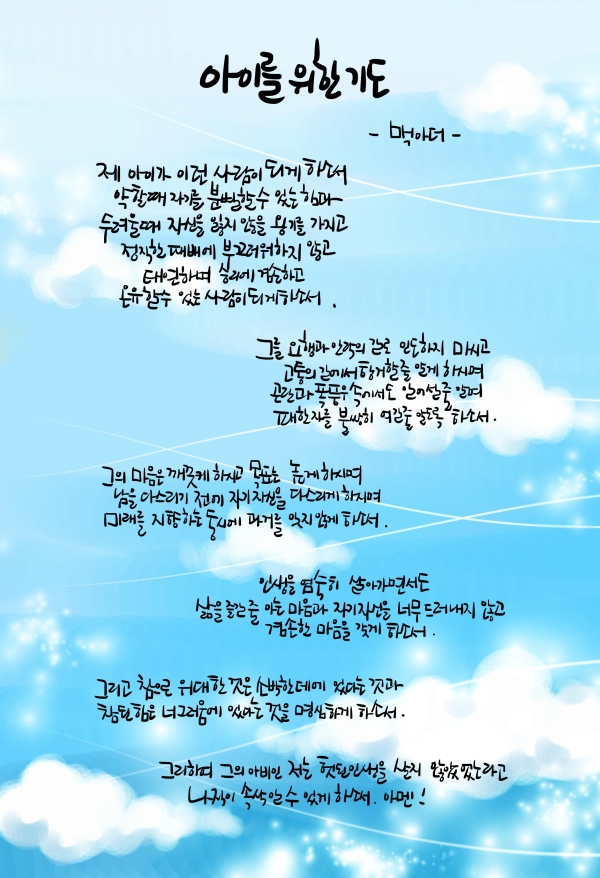 아이를 위한 기도
- 맥아더 -
제 아이가 이런 사람이 되게 하소서
약할때 자기를 분별할수 있는 힘과
두려울때 자신을 잃지 않을 용기를 가지고
정직한 패배에 부끄러워하지 않고
태연하며 승리에 겸손하고
온유할수 있는 사람이 되게하소서 .
그를 요행과 안락의 길로 인도하지 마시고
고통의 길에서 항거할줄 알게 하시며
곤란과 폭풍우 속에서도 일어설줄 알며
패한자를 불쌍히 여길줄 알도록 하소서.
그의 마음은 깨끗케 하시고 목표는 높게하시며
남을 다스리기 전에 자기자신을 다스리게하시며
미래를 지향하는 동시에 과거를 잊지 않게 하소서.
인생을 엄숙히 살아가면서도
삶을 즐길 줄 아는 마음과 자기자신을 너무 드러내지 않고
겸손한 마음을 갖게 하소서.
그리고 참으로 위대한 것은 소박한데에 있다는 것과
참된 힘은 너그러움에 있다는 것을 명심하게 하소서.
그리하여 그의 아비인 저는 헛된인생을 살지 않았 었노라고
나직이 속삭일 수 있게 하소서. 아멘!